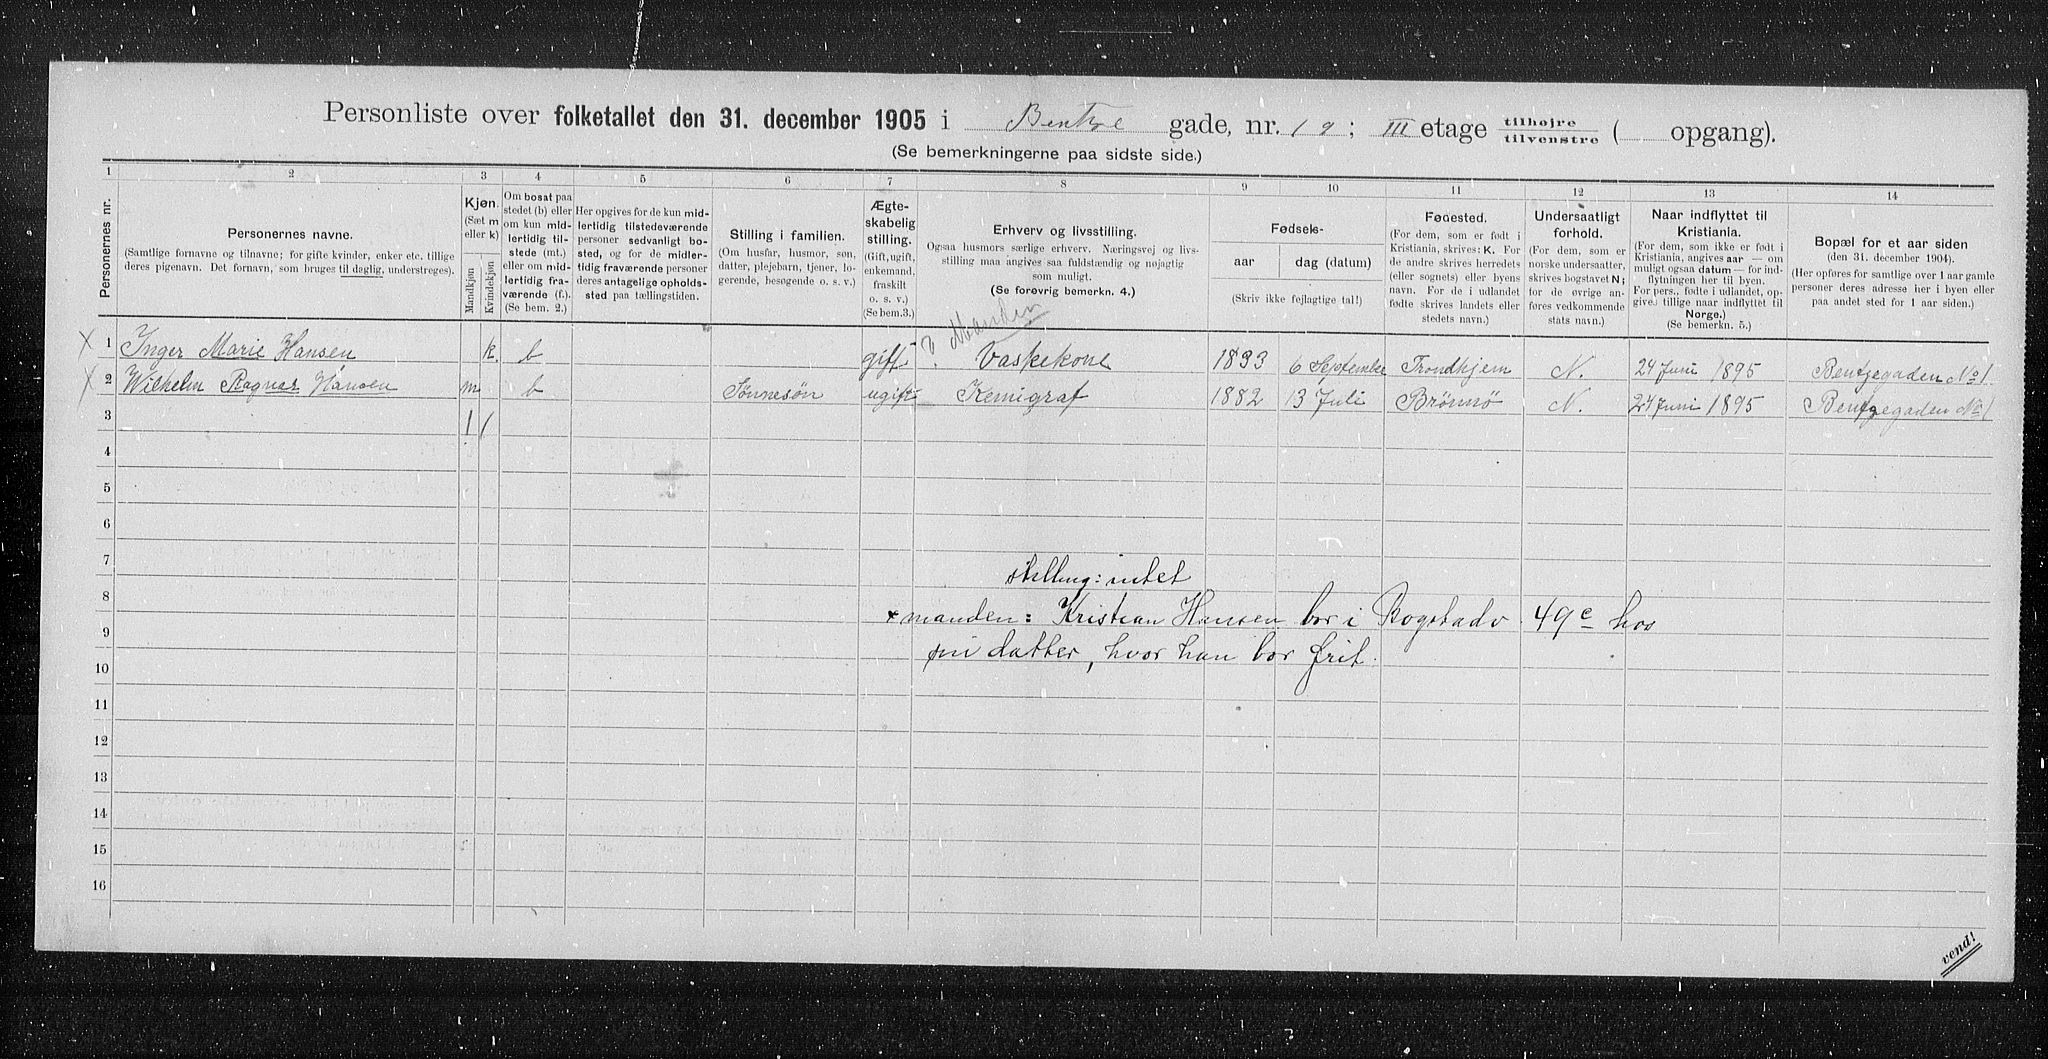 Personliste over folketallet den 31. december 1905 i Bentze gade, nr. 1 g; III etage tilhøjre tilvenstre ( opgang).
(Se bemerkningerne paa sidste side.)
1 2 3 4 5 6 7 8 9 10 11 12 13 14
Personernes nr.
Personernes navne.
(Samtlige fornavne og tilnavne; for gifte kvinder, enker etc. tillige
deres pigenavn. Det fornavn, som bruges til daglig, understreges).
Kjøn.
(Sæt m
eller k)
Mandkjøn
Kvindekjøn
Om bosat paa
stedet (b) eller
om kun mid-
lertidig til-
stede (mt.)
eller om mid-
lertidig fra-
værende (f.).
(Se bem. 2.)
Her opgives for de kun mid-
lertidig tilstedeværende
personer sedvanligt bo-
sted, og for de midler-
tidig fraværende personer
deres antagelige opholds-
sted paa tællingstiden.
Stilling i familien.
(Om husfar, husmor, søn,
datter, plejebarn, tjener, lo-
gerende, besøgende o. s. v.)
Ægte-
skabelig
stilling.
(Gift, ugift,
enkemand,
fraskilt
o. s. v.)
(Se bem.3.)
Erhverv og livsstilling.
Ogsaa husmors særlige erhverv. Næringsvej og livs-
stilling maa angives saa fuldstændig og nøjagtig
som muligt.
(Se forøvrig bemerkn. 4.)
Fødsels-
aar
dag (datum)
(Skriv ikke fejlagtige tal!)
Fødested.
(For dem, som er født i
Kristiania, skrives: K. For
de andre skrives herredets
(eller sognets) eller byens
navn. For de i udlandet
fødte skrives landets eller
stedets navn.)
Undersaatligt
forhold.
(For dem, som er
norske undersaatter,
skrives bogstavet N;
for de øvrige an-
føres vedkommende
stats navn.)
Naar indflyttet til
Kristiania.
(For dem, som ikke er født i
Kristiania, angives aar — om
muligt ogsaa datum — for ind-
flytningen her til byen.
For pers., fødte i udlandet, op-
gives tillige naar indflyttet til
Norge.)
(Se bemerkn. 5.)
Bopæl for et aar siden
(den 31. december 1904).
(Her opføres for samtlige over 1 aar gamle
personer deres adresse her i byen eller
paa andet sted for 1 aar siden.)
? Manden
X 1 Inger Marie Hansen k. b gift Vaskekone 1833 6 Septembe Trondhjem N. 24 Juni 1895 Bentzegaden No 1
X 2 Wilhelm Ragnar Hansen m b Sønnesøn ugift Kemigraf 1882 13 Juli Brönnö N. 24 Juni 1895 Bentzegaden No 1
3 1 1
4
5
6
7
stilling: intet
8
× manden: Kristian Hansen bor i Bogstadv. 49c hos
9
sin datter, hvor han bor frit.
10
11
12
13
14
15
16
vend!